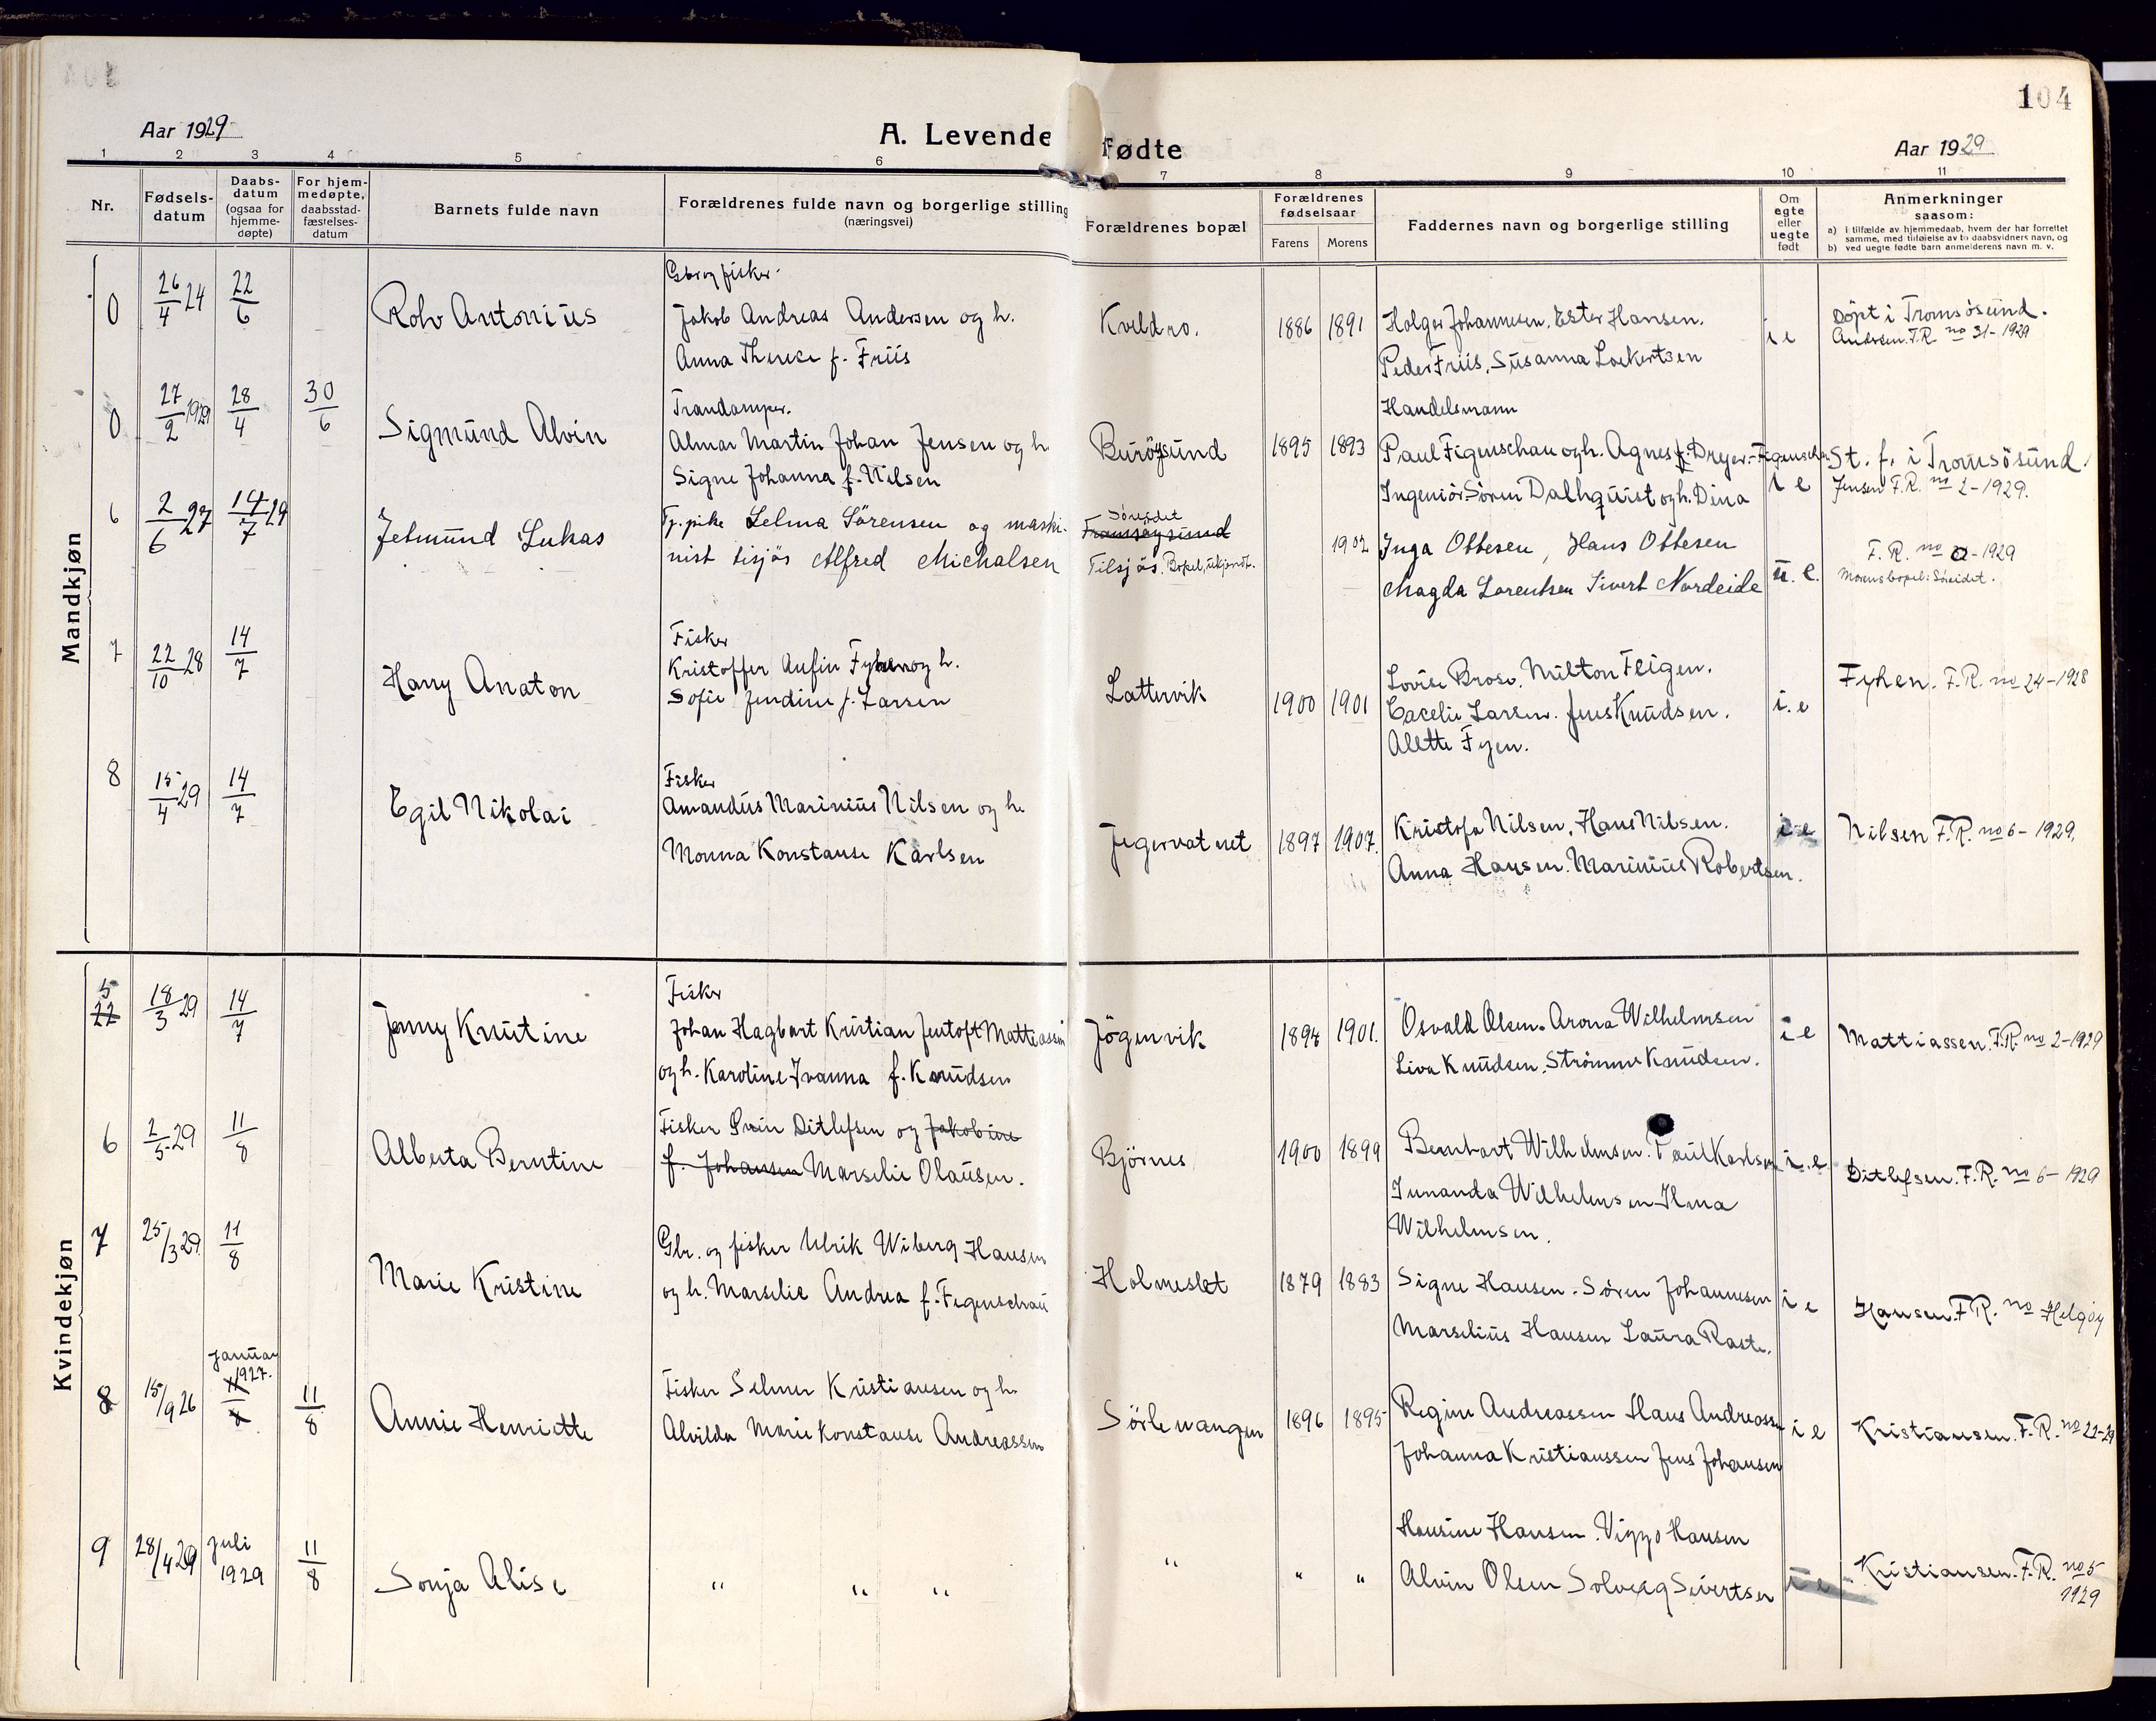 104
Aar 1929
A. Levende fødte
Aar 1929
1 2 3 4 5 6 7 8 9 10 11
Nr.
Fødsels-
datum
Daabs-
datum
(ogsaa for
hjemme-
døpte)
For hjem-
medøpte,
daabsstad-
fæstelses-
datum
Barnets fulde navn
Forældrenes fulde navn og borgerlige stilling
(næringsvei)
Forældrenes bopæl
Forældrenes
fødselsaar
Farens Morens
Faddernes navn og borgerlige stilling
Om
egte
eller
uegte
født
Anmerkninger
saasom:
a) i tilfælde av hjemmedaab, hvem der har forrettet
samme, med tilføielse av to daabsvidners navn, og
b) ved uegte fødte barn anmelderens navn m. v.
Mandkjøn
0
26/4 24
22/6
Rolv Antonius
Gbr og fisker
Jakob Andreas Andersen og h.
Anna Therese f. Friis
Kveldro.
1886 1891
Holger Johannesen. Ester Hansen.
Peder Friis. Susanna Lockertsen
i e
Döpt i Tromsösund.
Andersen. F.R. no 31-1929
0
27/2 1929
28/4
30/6
Sigmund Alvin
Trandamper.
Almar Martin Johan Jensen og h
Signe Johanna f. Nilsen
Buröysund
1895 1893
Handelsmann
Paul Figenschau og h. Agnes f. Dreyer-Figenschau
Ingeniör Sören Dalhquist og h. Dina
i e
St. f. i Tromsösund.
Jensen F.R. no 2-1929.
6
2/6 27
14/7 29
Jetmund Lukas
Tj. pike Selma Sörensen og maski-
nist tisjös Alfred Michalsen
Söreidet
Fransöysund
Tilsjös. Bopel ukjendt.
1902
Inga Ottesen, Hans Ottesen
Magda Lorentsen Sivert Nordeide
u. e.
F. R. no -1929
Morens bopel: Söreidet.
7
22/10 28
14/7
Harry Anaton
Fisker
Kristoffer Anfin Fyhen og h.
Sofie Jendine f. Larsen
Lattervik
1900 1901
Lovise Brose. Milton Fligen.
Cacelie Larsen. Jens Knudsen.
Alette Fyen.
i. e
Fyhen. F. R. no 24-1928
8
15/4 29
14/7
Egil Nikolai
Fisker
Amandus Marinius Nilsen og h.
Monna Konstanse Karlsen
Jegervatnet
1897 1907.
Kristofa Nilsen. Hans Nilsen.
Anna Hansen. Marinius Robertsen.
i e
Nilsen F.R. no 6-1929.
Kvindekjøn
5
22
18/3 29
14/7
Jenny Knutine
Fisker
Johan Hagbart Kristian Jentoft Mattiassen
og h. Karoline Ivanna f. Knudsen
Jögervik
1894 1901.
Osvald Olsen. Arona Wilhelmsen
Liva Knudsen. Strömme Knudsen.
i e
Mattiassen. F.R. no 2-1929
6
2/5 29
11/8
Alberta Berntine
Fisker Svein Ditlefsen og Jakobine
f. Johansen Marselie Olausen.
Björnes
1900 1899
Bernhart Wilhelmsen. Paul Karlsen
Junanda Wilhelmsen Ilma
Wilhelmsen.
i. e
Ditlefsen. F.R. no 6-1929
7
25/3 29
11/8
Marie Kristine
Gbr. og fisker Ulrik Wiberg Hansen
og h. Marselie Andrea f. Figenschau
Holmeslet
1879 1883
Signe Hansen. Sören Johannesen
Marselius Hansen Laura Raste.
i e
Hansen. F.R. no Helgöy
8
15/9 26
januar
1927.
11/8
11/8
Annie Henriette
Fisker Selmer Kristiansen og h.
Alvilda Marie Konstanse Andreassen
Sörlenangen
1896 1895
Regine Andreassen Hans Andreassen
Johanna Kristianssen Jens Johansen
i e
Kristiansen. F.R. no 22-29
9
28/4 29
juli
1929
11/8
Sonja Alise
" " "
"
" "
Hansine Hansen. Viggo Hansen
Alvin Olsen Solveig Sivertsen
i e
Kristiansen. F.R. no 5
1929